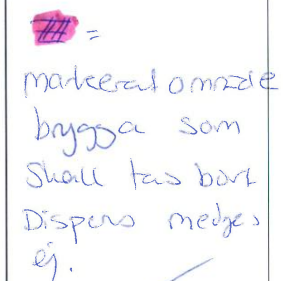 =
markerat område
brygga som
skall tas bort
Dispens medges
ej.